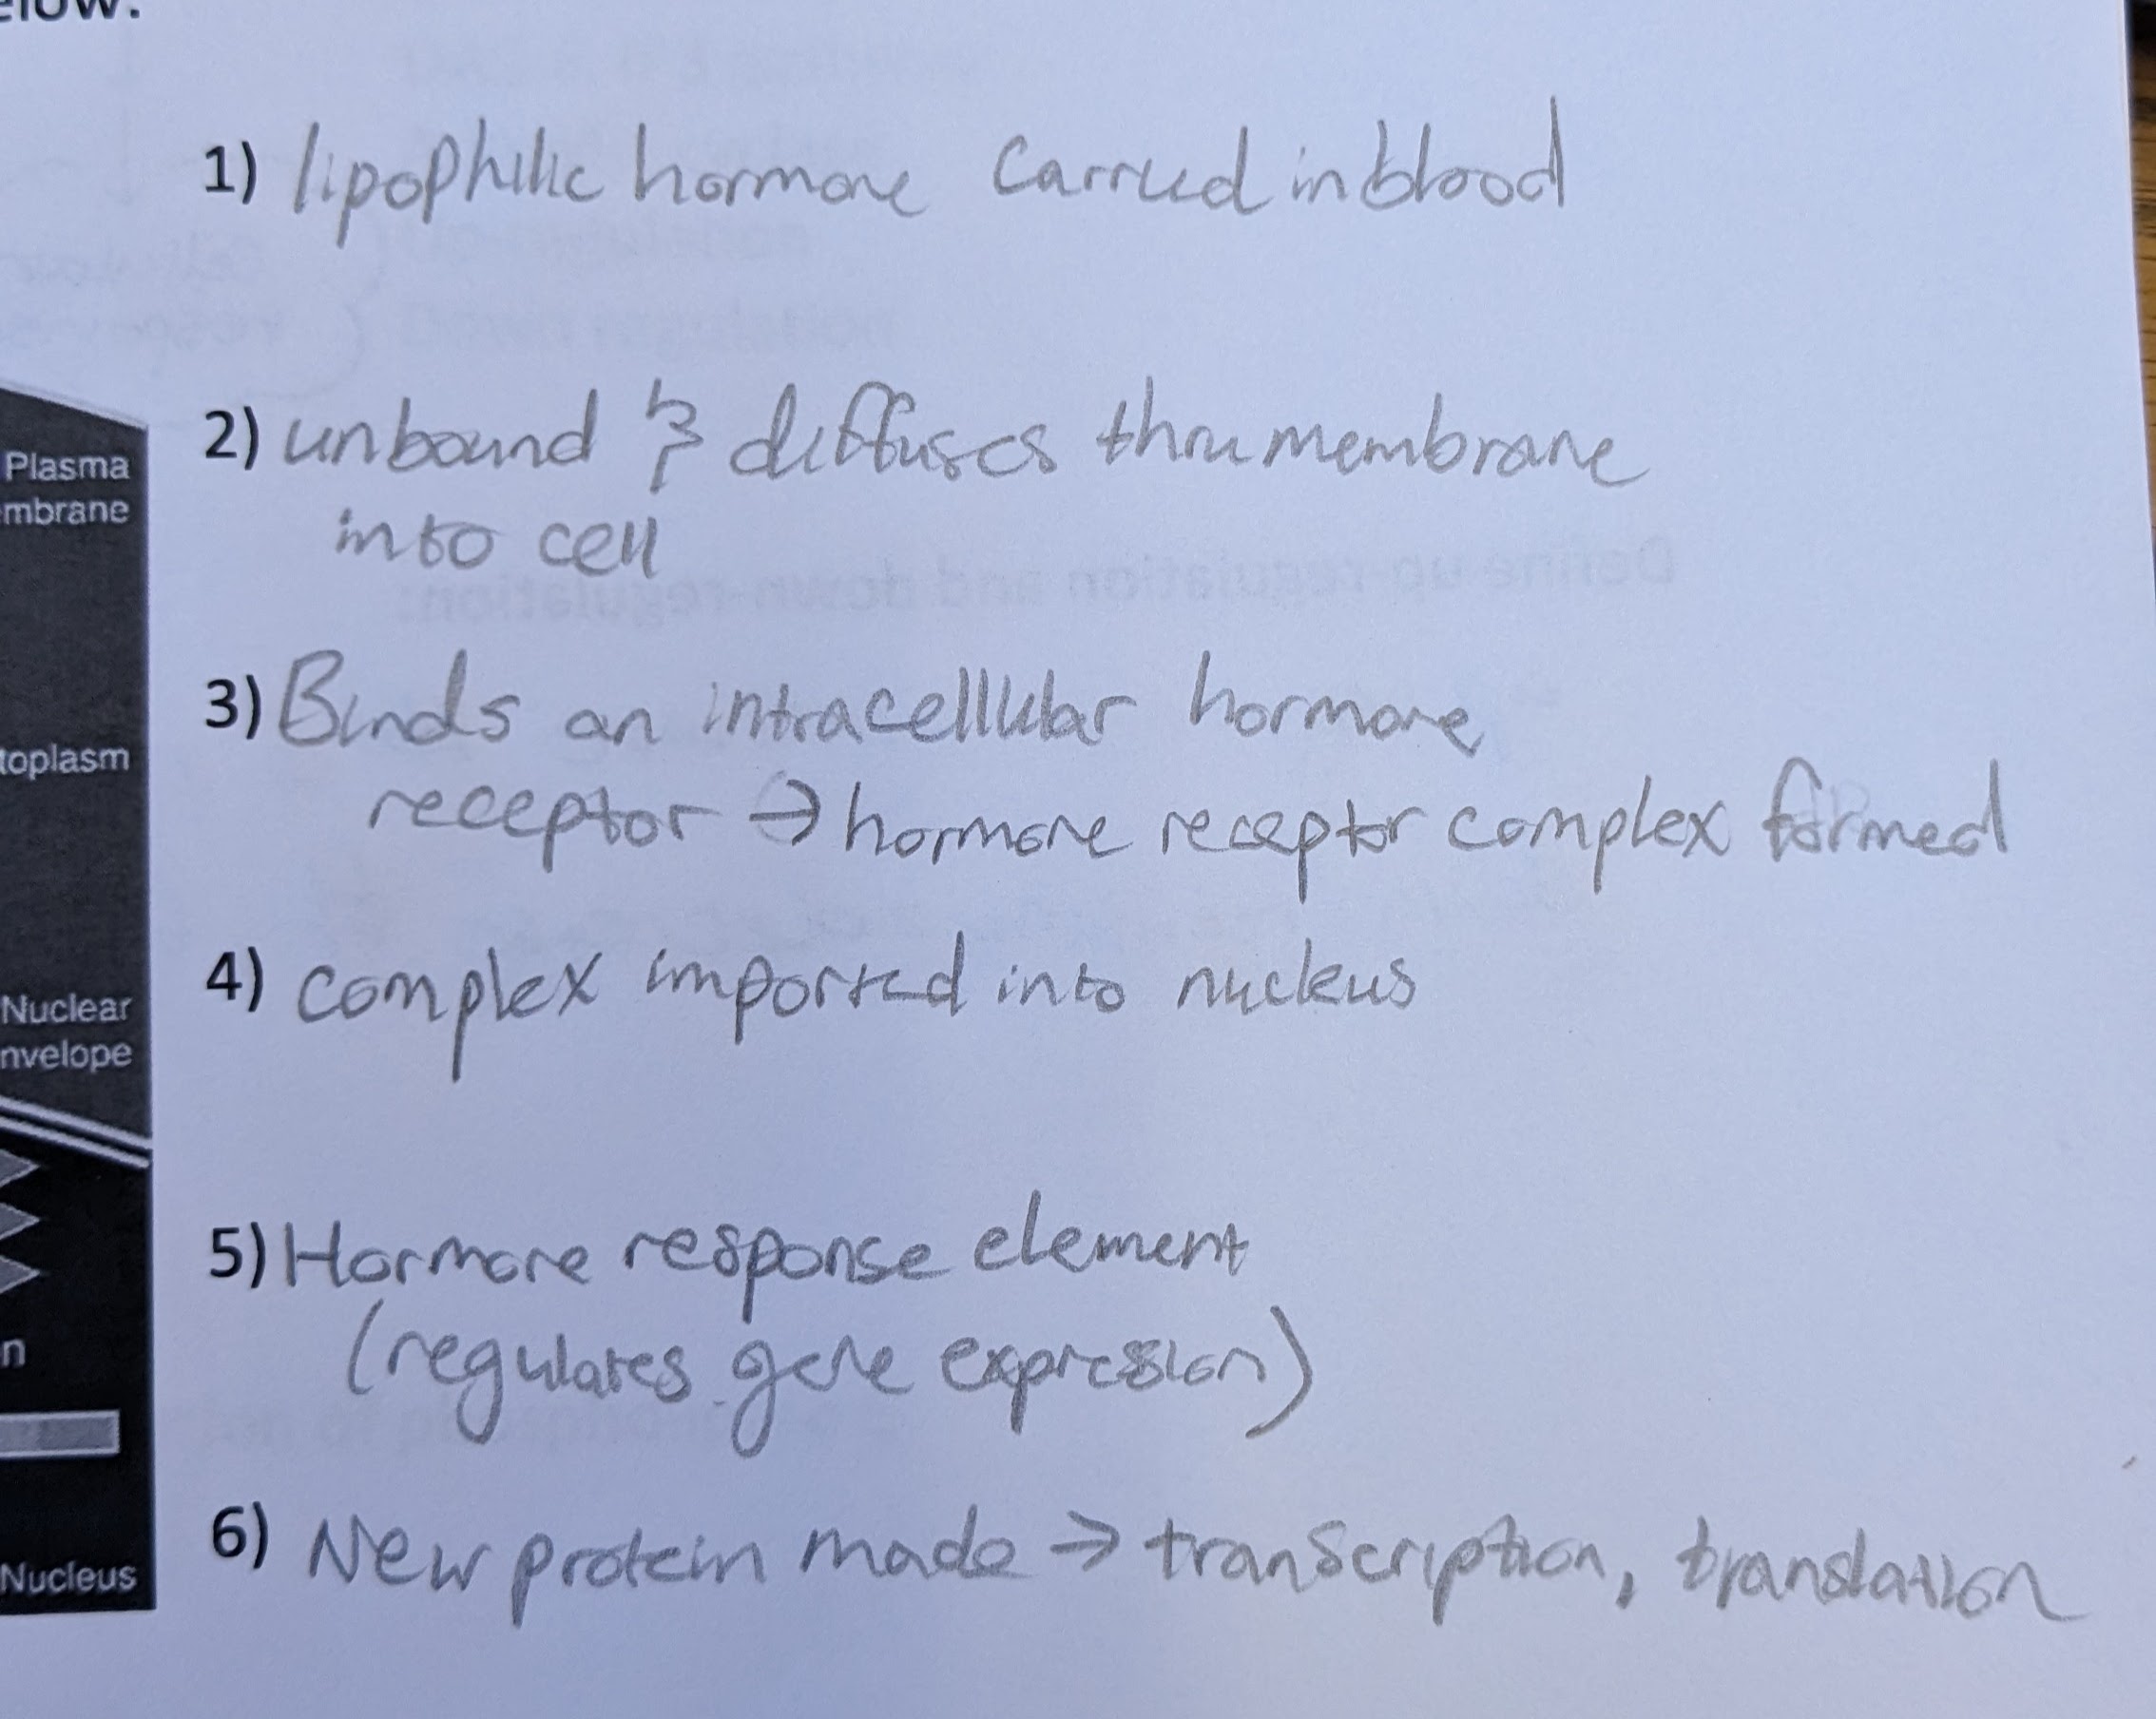 1) lipophilic hormone carried in blood
2) unbound & diffuses thru membrane
into cell
Plasma
mbrane
3) Binds an intracellular hormone
receptor → hormone receptor complex formed
toplasm
4) complex imported into nucleus
Nuclear
nvelope
5) Hormone response element
(regulates gene expression)
n
6) New protein made → transcription, translation
Nucleus
Define up-regulation and down-regulation:
Down regulation